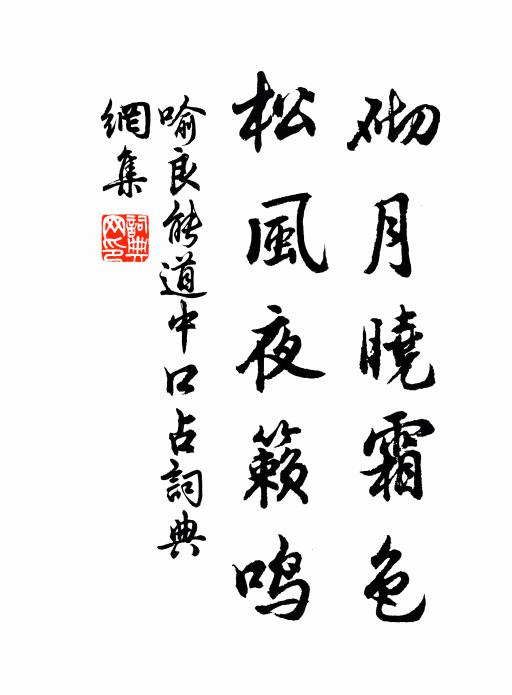 砌月曉霜色
松風夜籟鳴
喻良能道中口占詞典
網集
詞典網印